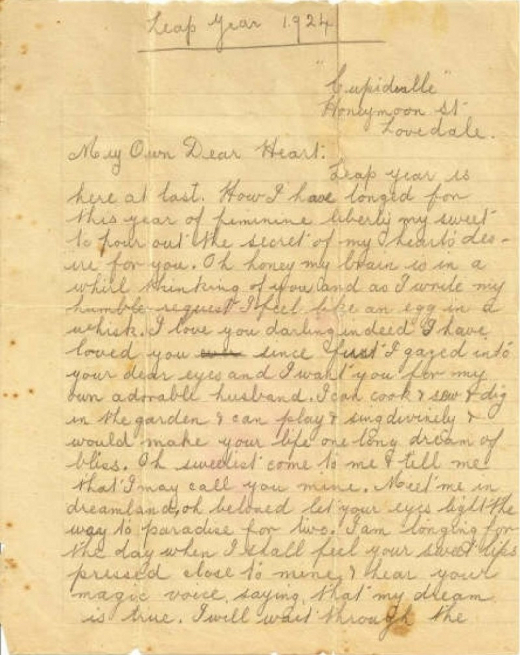 Leap Year 1924
"Cupidville"
Honeymoon St
Lovedale.
My Own Dear Heart.
Leap year is
here at last. How I have longed for
this year of feminine liberty my sweet
to pour out the secret of my heart's des-
ire for you. Oh honey my brain is in a
whirl thinking of you and as I write my
humble request I feel like an egg in a
whisk. I love you darling indeed I have
loved you ever since first I gazed into
your dear eyes and I want you for my
own adorable husband. I can cook & sew & dig
in the garden & can play & sing divinely &
would make your life one long dream of
bliss. Oh sweetest come to me & tell me
that I may call you mine. Meet me in
dreamland, oh beloved let your eyes light the
way to paradise for two. I am longing for
the day when I shall feel your sweet lips
pressed close to mine, & hear your
magic voice, saying, that my dream
is true. I will wait through the